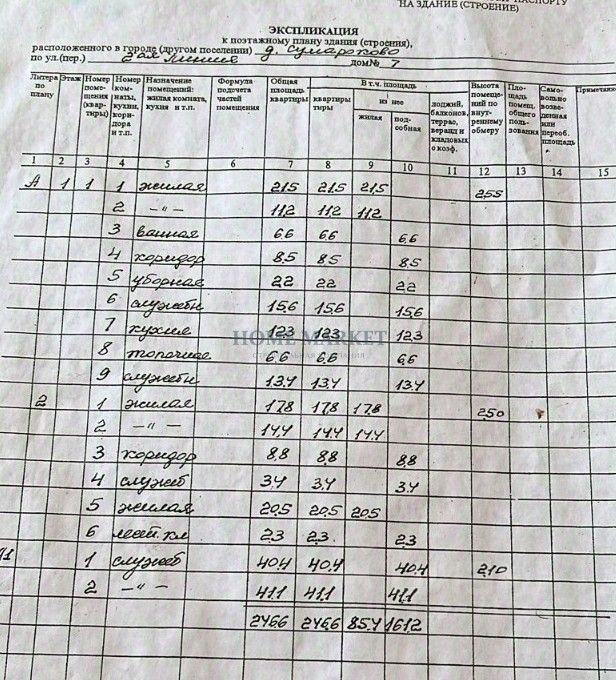 ПАСПОРТУ
НА ЗДАНИЕ (СТРОЕНИЕ)
ЭКСПЛИКАЦИЯ
к поэтажному плану здания (строения),
расположенного в городе (другом поселении) д. Сумароково
по ул.(пер.) 2ая Линия дом№ 7
Литера по плану Этаж Номер помещения (квартиры) Номер (комнаты, кухни, коридора и т.п. Назначение помещений: жилая комната, кухня и т.п. Формула подсчета частей помещения Общая площадь квартиры В т.ч. площадь квартиры тиры из нее жилая подсобная лоджий, балконов, террас, веранд и кладовых с коэф. Высота помещений по внутреннему обмеру Площадь помещ. общего пользования Самовольно возведенная или переоб. площадь Примечание
1 2 3 4 5 6 7 8 9 10 11 12 13 14 15
А 1 1 1 жилая 21,5 21,5 21,5 2,55
2 —"— 11,2 11,2 11,2
3 ванная 6,6 6,6 6,6
4 коридор 8,5 8,5 8,5
5 уборная 2,2 2,2 2,2
6 служебн 15,6 15,6 15,6
7 кухня 12,3 12,3 12,3
HOME MARKET
8 топочная 6,6 6,6 6,6
9 служебн 13,4 13,4 13,4
2 1 жилая 17,8 17,8 17,8 2,50
2 —"— 14,4 14,4 14,4
3 коридор 8,8 8,8 8,8
4 служеб 3,4 3,4 3,4
5 жилая 20,5 20,5 20,5
6 лест. кл 2,3 2,3 2,3
1 служеб 40,4 40,4 40,4 2,10
2 —"— 41,1 41,1 41,1
246,6 246,6 85,4 161,2